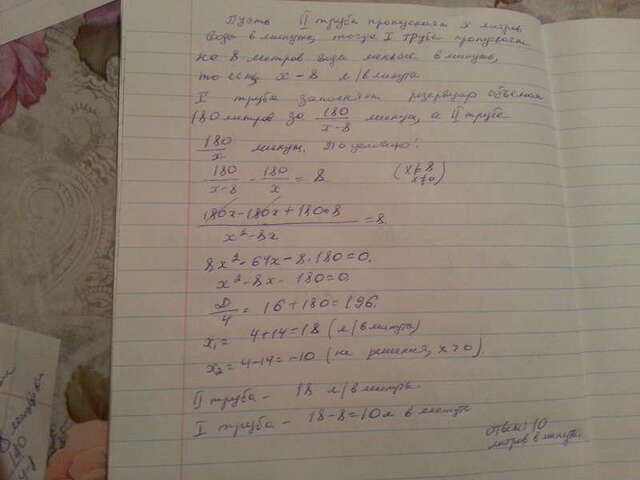 Пусть II труба пропускает x литров
воды в минуту, тогда I труба пропускает
на 8 литров воды меньше в минуту,
то есть x - 8 л/в минуту
I труба заполняет резервуар объемом
180 литров за 180/(x-8) минут, а II труба
180/x минут. По условию:
180/(x-8) - 180/x = 8. (x≠8 x≠0)
(180x - 180x + 180·8)/(x² - 8x) = 8.
8x² - 64x - 8·180 = 0.
x² - 8x - 180 = 0.
D/4 = 16 + 180 = 196.
x₁ = 4 + 14 = 18 (л/в минуту)
x₂ = 4 - 14 = -10 (не решение, x>0).
II труба - 18 л/в минуту.
I труба - 18 - 8 = 10 л в минуту
Ответ: 10
литров в минуту.